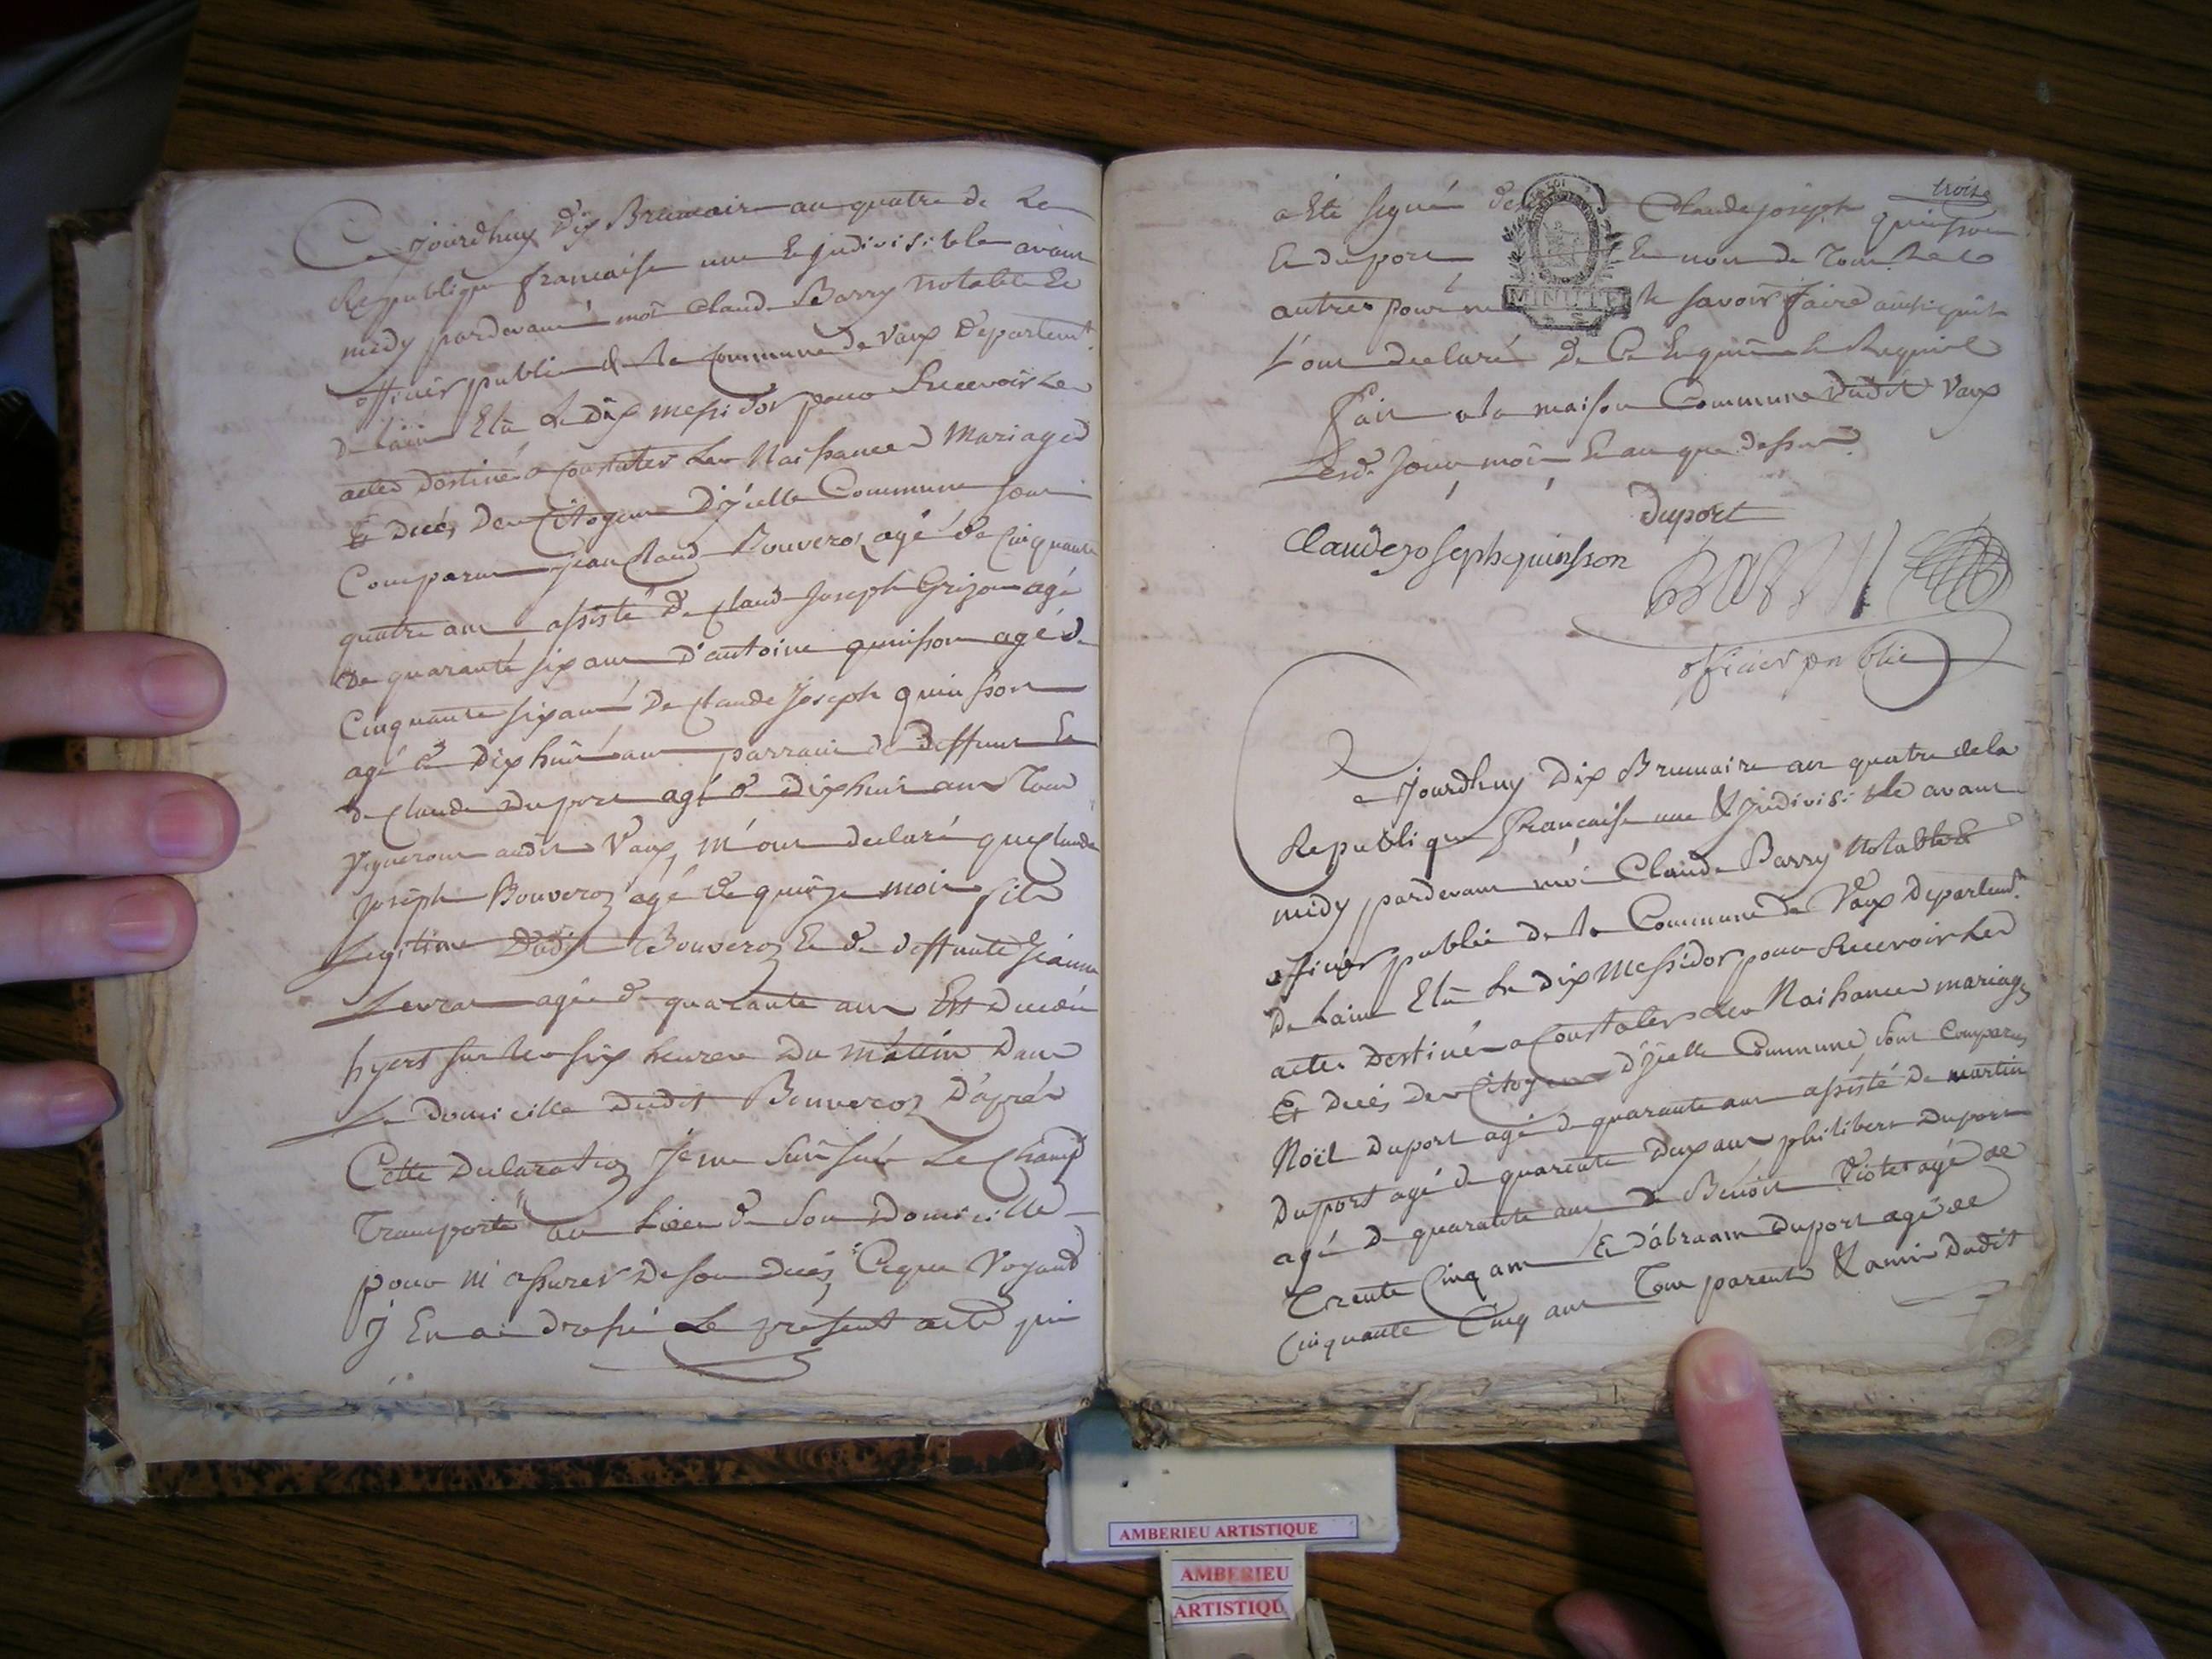 Ce jourdhuy Dix Brumaire an quatre de Le
Republique francaise une Et jndivisible avant
midy pardevant moi Claude Barry notable Et
officier public de la Commune de Vaux Departemt.
de Lain Elu Le Dix messidor pour Recevoir Les
actes Destinés a Constater Les Naissances Mariages
Et Decés Des Citoyens D'jcelle Commune sont
Comparus jean Claude Bouveroz agé de Cinquante
quatre ans assisté de Claude Joseph Grizon agé
De quarante six ans D'antoine quinsson agé de
Cinquante six ans De Claude Joseph quinsson
agé de Dix huit ans parrain du deffunt Et
de Claude Duport agé de dixhuit ans Tous
Vignerons audit Vaux, m'ont declaré que Claude
Joseph Bouveroz agé de quinze mois fils
Legitime Dudit Bouveroz Et de deffunte Jeanne
Levrat agée de quarante ans Est Decedé
hyert sur les six heures Du mattin Dans
Le domicille dudit Bouveroz D'aprés
Cette Declaration je me suis sur Le Champ
Transporté au Lieu de son Domicille
pour m'assurer de son Decés, Ce que Voyant
J En ai dressé Le present acte qui
troize
a Eté signé de Claude joseph quinsson
Et duport Et non de Tous Les
autres pour ne le savoir faire ainsi quils
L'ont declaré De Ce Enquis Et Requis
MINUTE
Fait a la maison Commune Dudit Vaux
Lesd. Jour mois Et an que dessus
duport
Claudejosephquinsson
BARRY
officier public
Ce jourdhuy Dix Brumaire an quatre de la
Republique francaise une & Jndivisible avant
midy pardevant moi Claude Barry Notable &
officier public de la Commune de Vaux Departemt.
De Lain Elu Le dix Messidor pour Recevoir Les
actes Destinés a Constater Les Naissances mariages
Et Decés Des Citoyens D'jcelle Commune, sont Comparus
Noël Duport agé de quarante ans assisté De martin
Duport agé de quarente Deux ans philibert Duport
agé De quarante ans de Benoit Violet agé de
Trente Cinq ans Et D'abraam Duport agé de
Cinquante Cinq ans Tous parents & amis Dudit
AMBERIEU ARTISTIQUE
AMBERIEU
ARTISTIQU